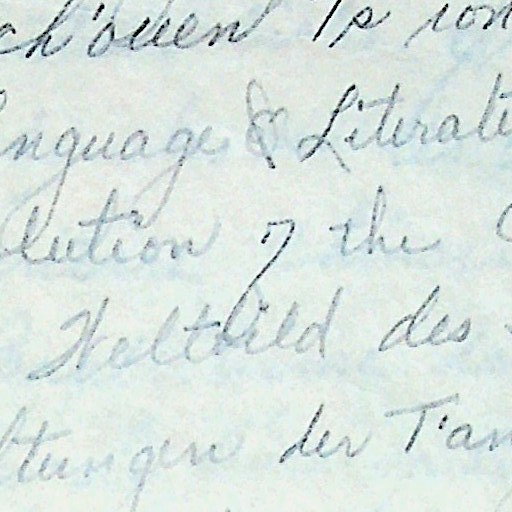 ch'üen Ts
nguage & Literat
lution of the
Weltbild des
ltungen der T'an